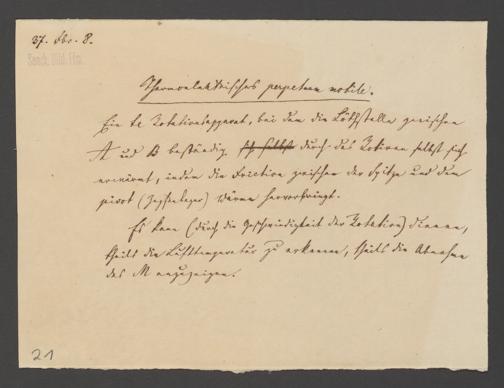 37. Dbr. 8.
Senck. Bibl. Ffm.
Thermoelektrisches perpetuum mobile.
Ein te Rotationsapparat, bei dem die Löthstelle zwischen
A und B beständig sich selbst durch das Rotiren selbst sich
erwärmt, indem die Friction zwischen der Spitze und dem
pivot (Zapfenlager) Wärme hervorbringt.
Es kann (durch die Geschwindigkeit der Rotation) dienen,
theils die Lufttemperatur zu erkennen, theils die Abnahme
des M anzuzeigen.
21